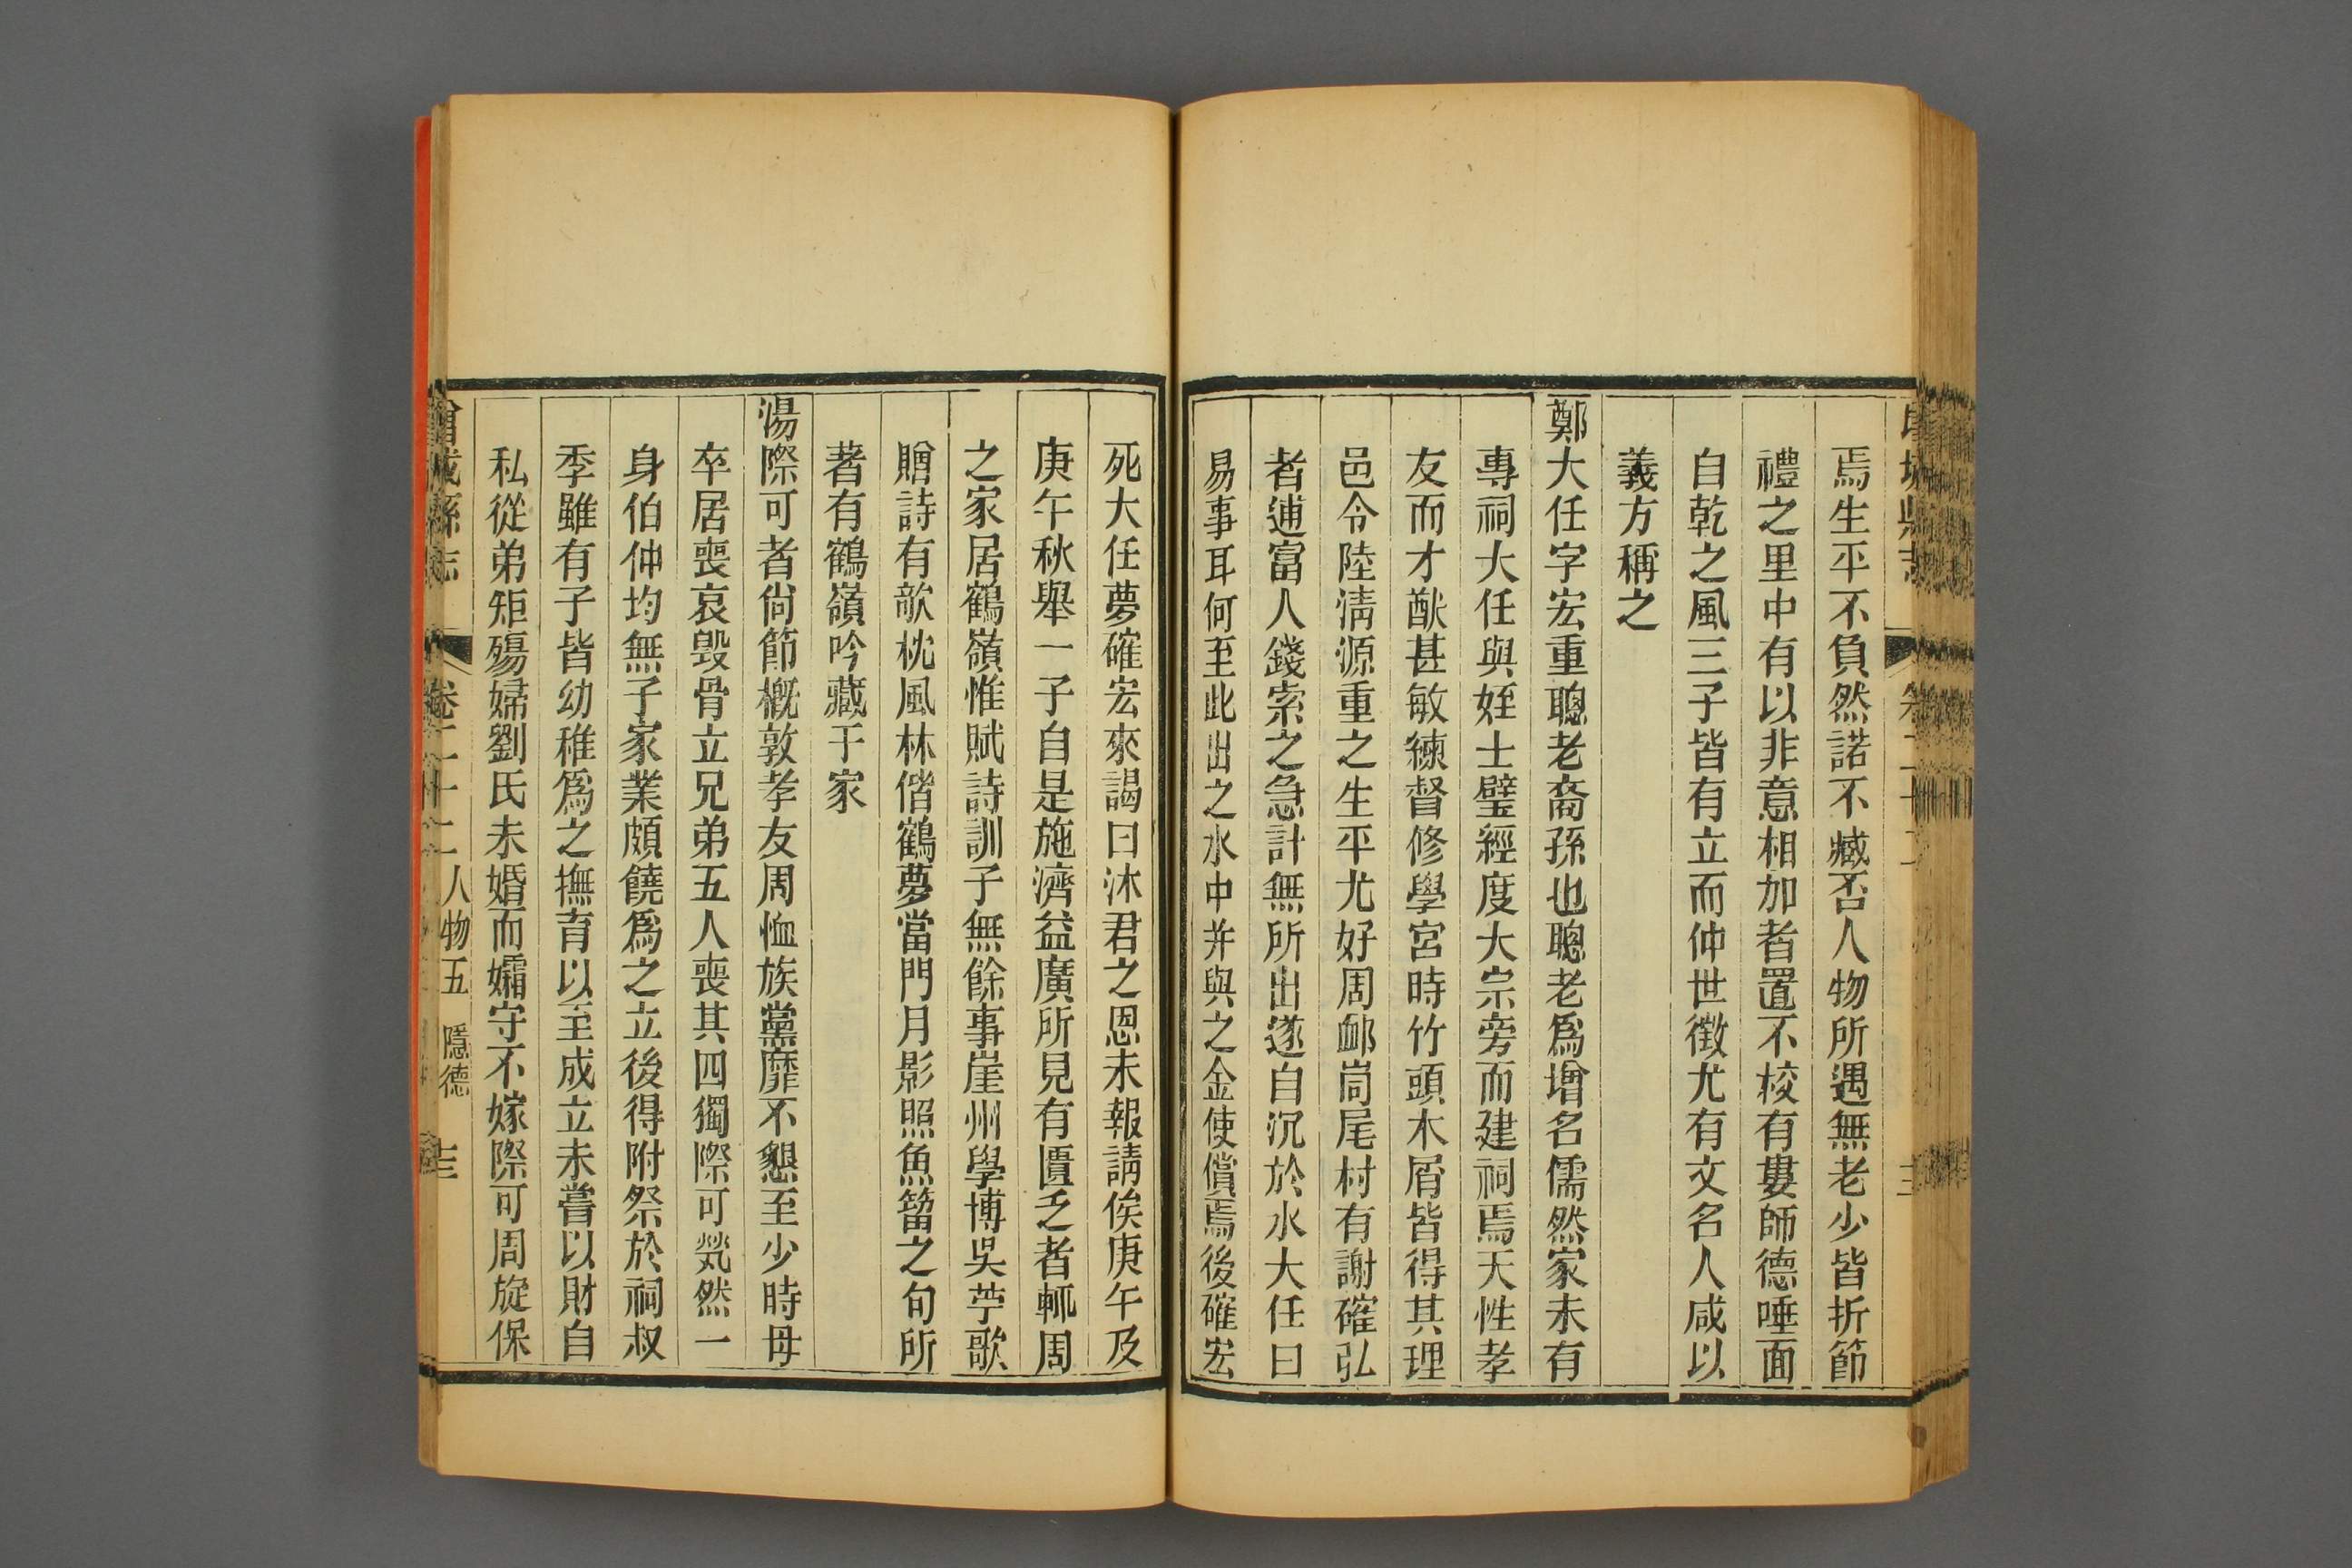 焉生平不負然諾不臧否人物所遇無老少皆折節
禮之里中有以非意相加者置不校有婁師德唾面
自乾之風三子皆有立而仲世徵尤有文名人咸以
義方稱之
鄭大任字宏重聰老裔孫也聰老爲增名儒然家未有
專祠大任與姪士璧經度大宗旁而建祠焉天性孝
友而才猷甚敏練督修學宮時竹頭木屑皆得其理
邑令陸清源重之生平尤好周卹崗尾村有謝確弘
者逋富人錢索之急計無所出遂自沉於水大任曰
易事耳何至此出之水中并與之金使償焉後確宏
死大任夢確宏來謁曰沐君之恩未報請俟庚午及
庚午秋舉一子自是施濟益廣所見有匱乏者輒周
之家居鶴嶺惟賦詩訓子無餘事崖州學博吳苧歌
贈詩有欹枕風林偕鶴夢當門月影照魚簹之句所
著有鶴嶺吟藏于家
湯際可者尙節概敦孝友周恤族黨靡不懇至少時母
卒居喪哀毀骨立兄弟五人喪其四獨際可煢然一
身伯仲均無子家業頗饒爲之立後得附祭於祠叔
季雖有子皆幼稚爲之撫育以至成立未嘗以財自
私從弟矩殤婦劉氏未婚而孀守不嫁際可周旋保
增城縣志 卷二十二 人物五 隱德 三